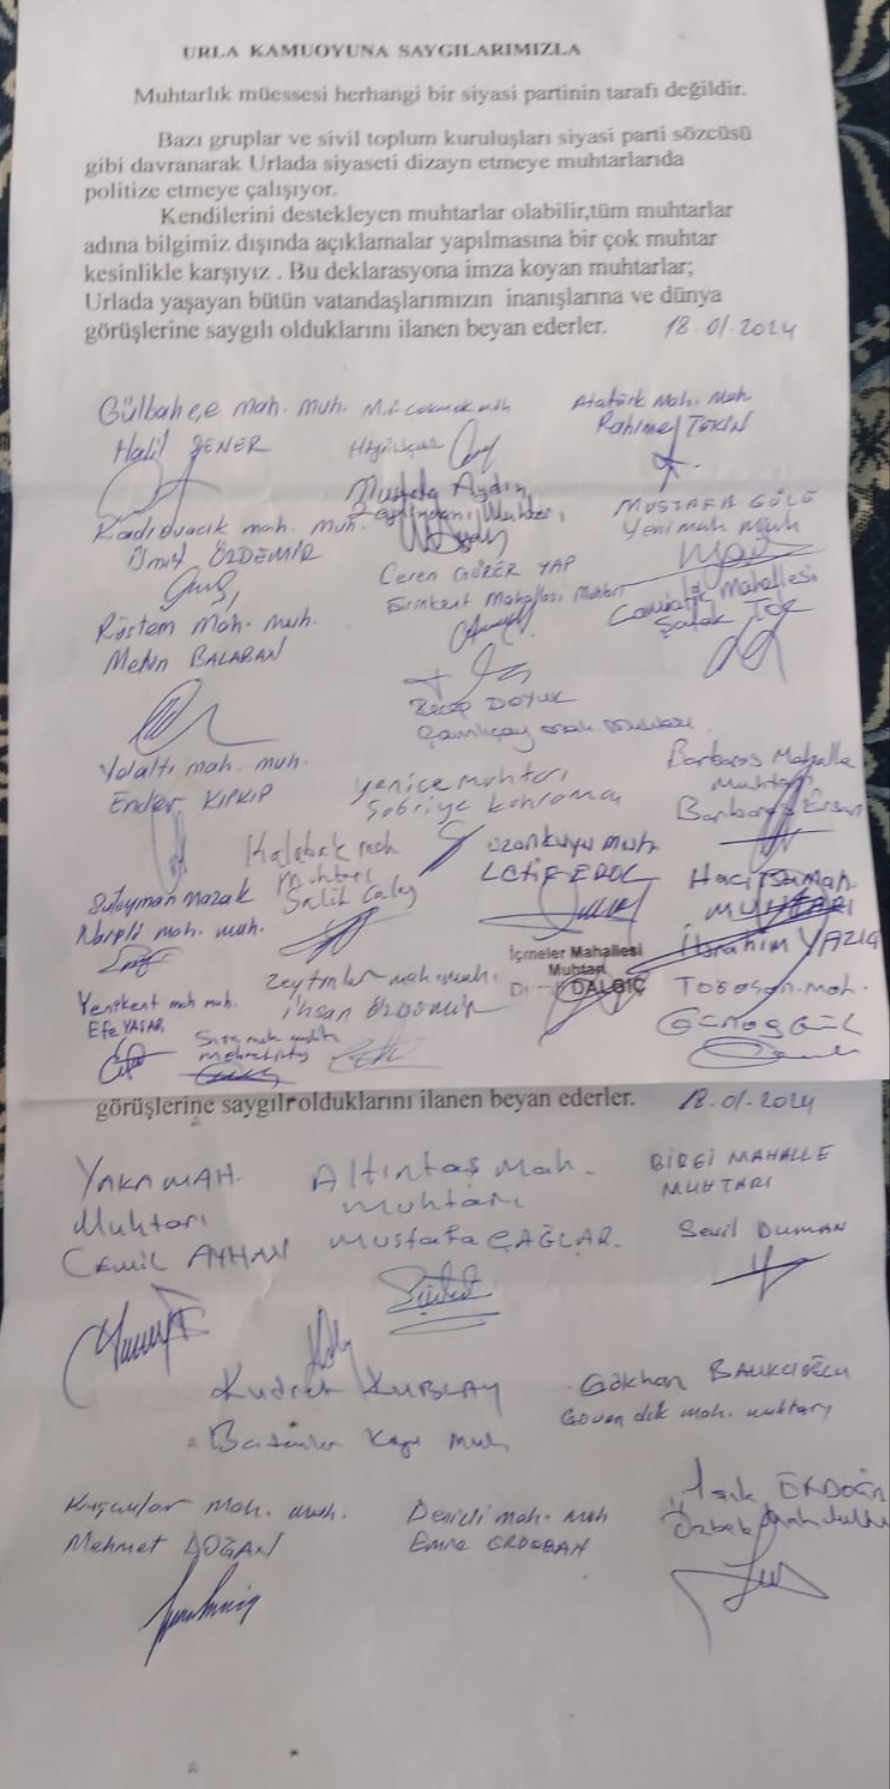 URLA KAMUOYUNA SAYGILARIMIZLA
Muhtarlık müessesi herhangi bir siyasi partinin tarafı değildir.
Bazı gruplar ve sivil toplum kuruluşları siyasi parti sözcüsü
gibi davranarak Urlada siyaseti dizayn etmeye muhtarlarıda
politize etmeye çalışıyor.
Kendilerini destekleyen muhtarlar olabilir,tüm muhtarlar
adına bilgimiz dışında açıklamalar yapılmasına bir çok muhtar
kesinlikle karşıyız . Bu deklarasyona imza koyan muhtarlar;
Urlada yaşayan bütün vatandaşlarımızın inanışlarına ve dünya
görüşlerine saygılı olduklarını ilanen beyan ederler. 18.01.2024
Gülbahçe mah. muh.
Halil ŞENER
Atatürk Mah. Muh.
Rahime TEKİN
Kadıovacık mah. muh.
Ümit ÖZDEMİR
Mustafa Aydın
MUSTAFA GÖLÜ
Yeni mah Muh
Rüstem Mah. muh.
Metin BALABAN
Ceren GÜZER YAP
Sırakent Mahallesi Muhtarı
Mahallesi
Şafak
Recep DOYUK
Çamlıçay mah
Yolaltı mah. muh.
Ender KIPKIP
Yenice muhtarı
Sabriye Kahraman
Barbaros Mahalle
Muhtarı
Barbaros Ersan
Kalabak mah
Muhtarı
Salih
Uzunkuyu muh
LATİF EROL
Süleyman Mazak
mah. muh.
Hacı İsa mah.
MUHTARI
İbrahim YAZIG
Yenikent mah muh.
Efe YAŞAR
Zeytinler mah. muh.
İhsan ÖZDEMİR
İçmeler Mahallesi
Muhtarı
DALGIÇ
Torasan mah.
Mehmet
görüşlerine saygılı olduklarını ilanen beyan ederler. 18.01.2024
YAKA MAH.
Muhtarı
Cemil AYHAN
Altıntaş Mah.
Muhtarı
Mustafa ÇAĞLAR.
BİRGİ MAHALLE
MUHTARI
Sevil DUMAN
Kudret KUBLAY
Kapı Muh.
Gökhan BALIKÇIOĞLU
Güvendik mah. muhtarı
Kuşçular Mah. muh.
Mehmet DOĞAN
Denizli mah. muh
Emre ERDOĞAN
Işık ERDOĞ
Özbek mah